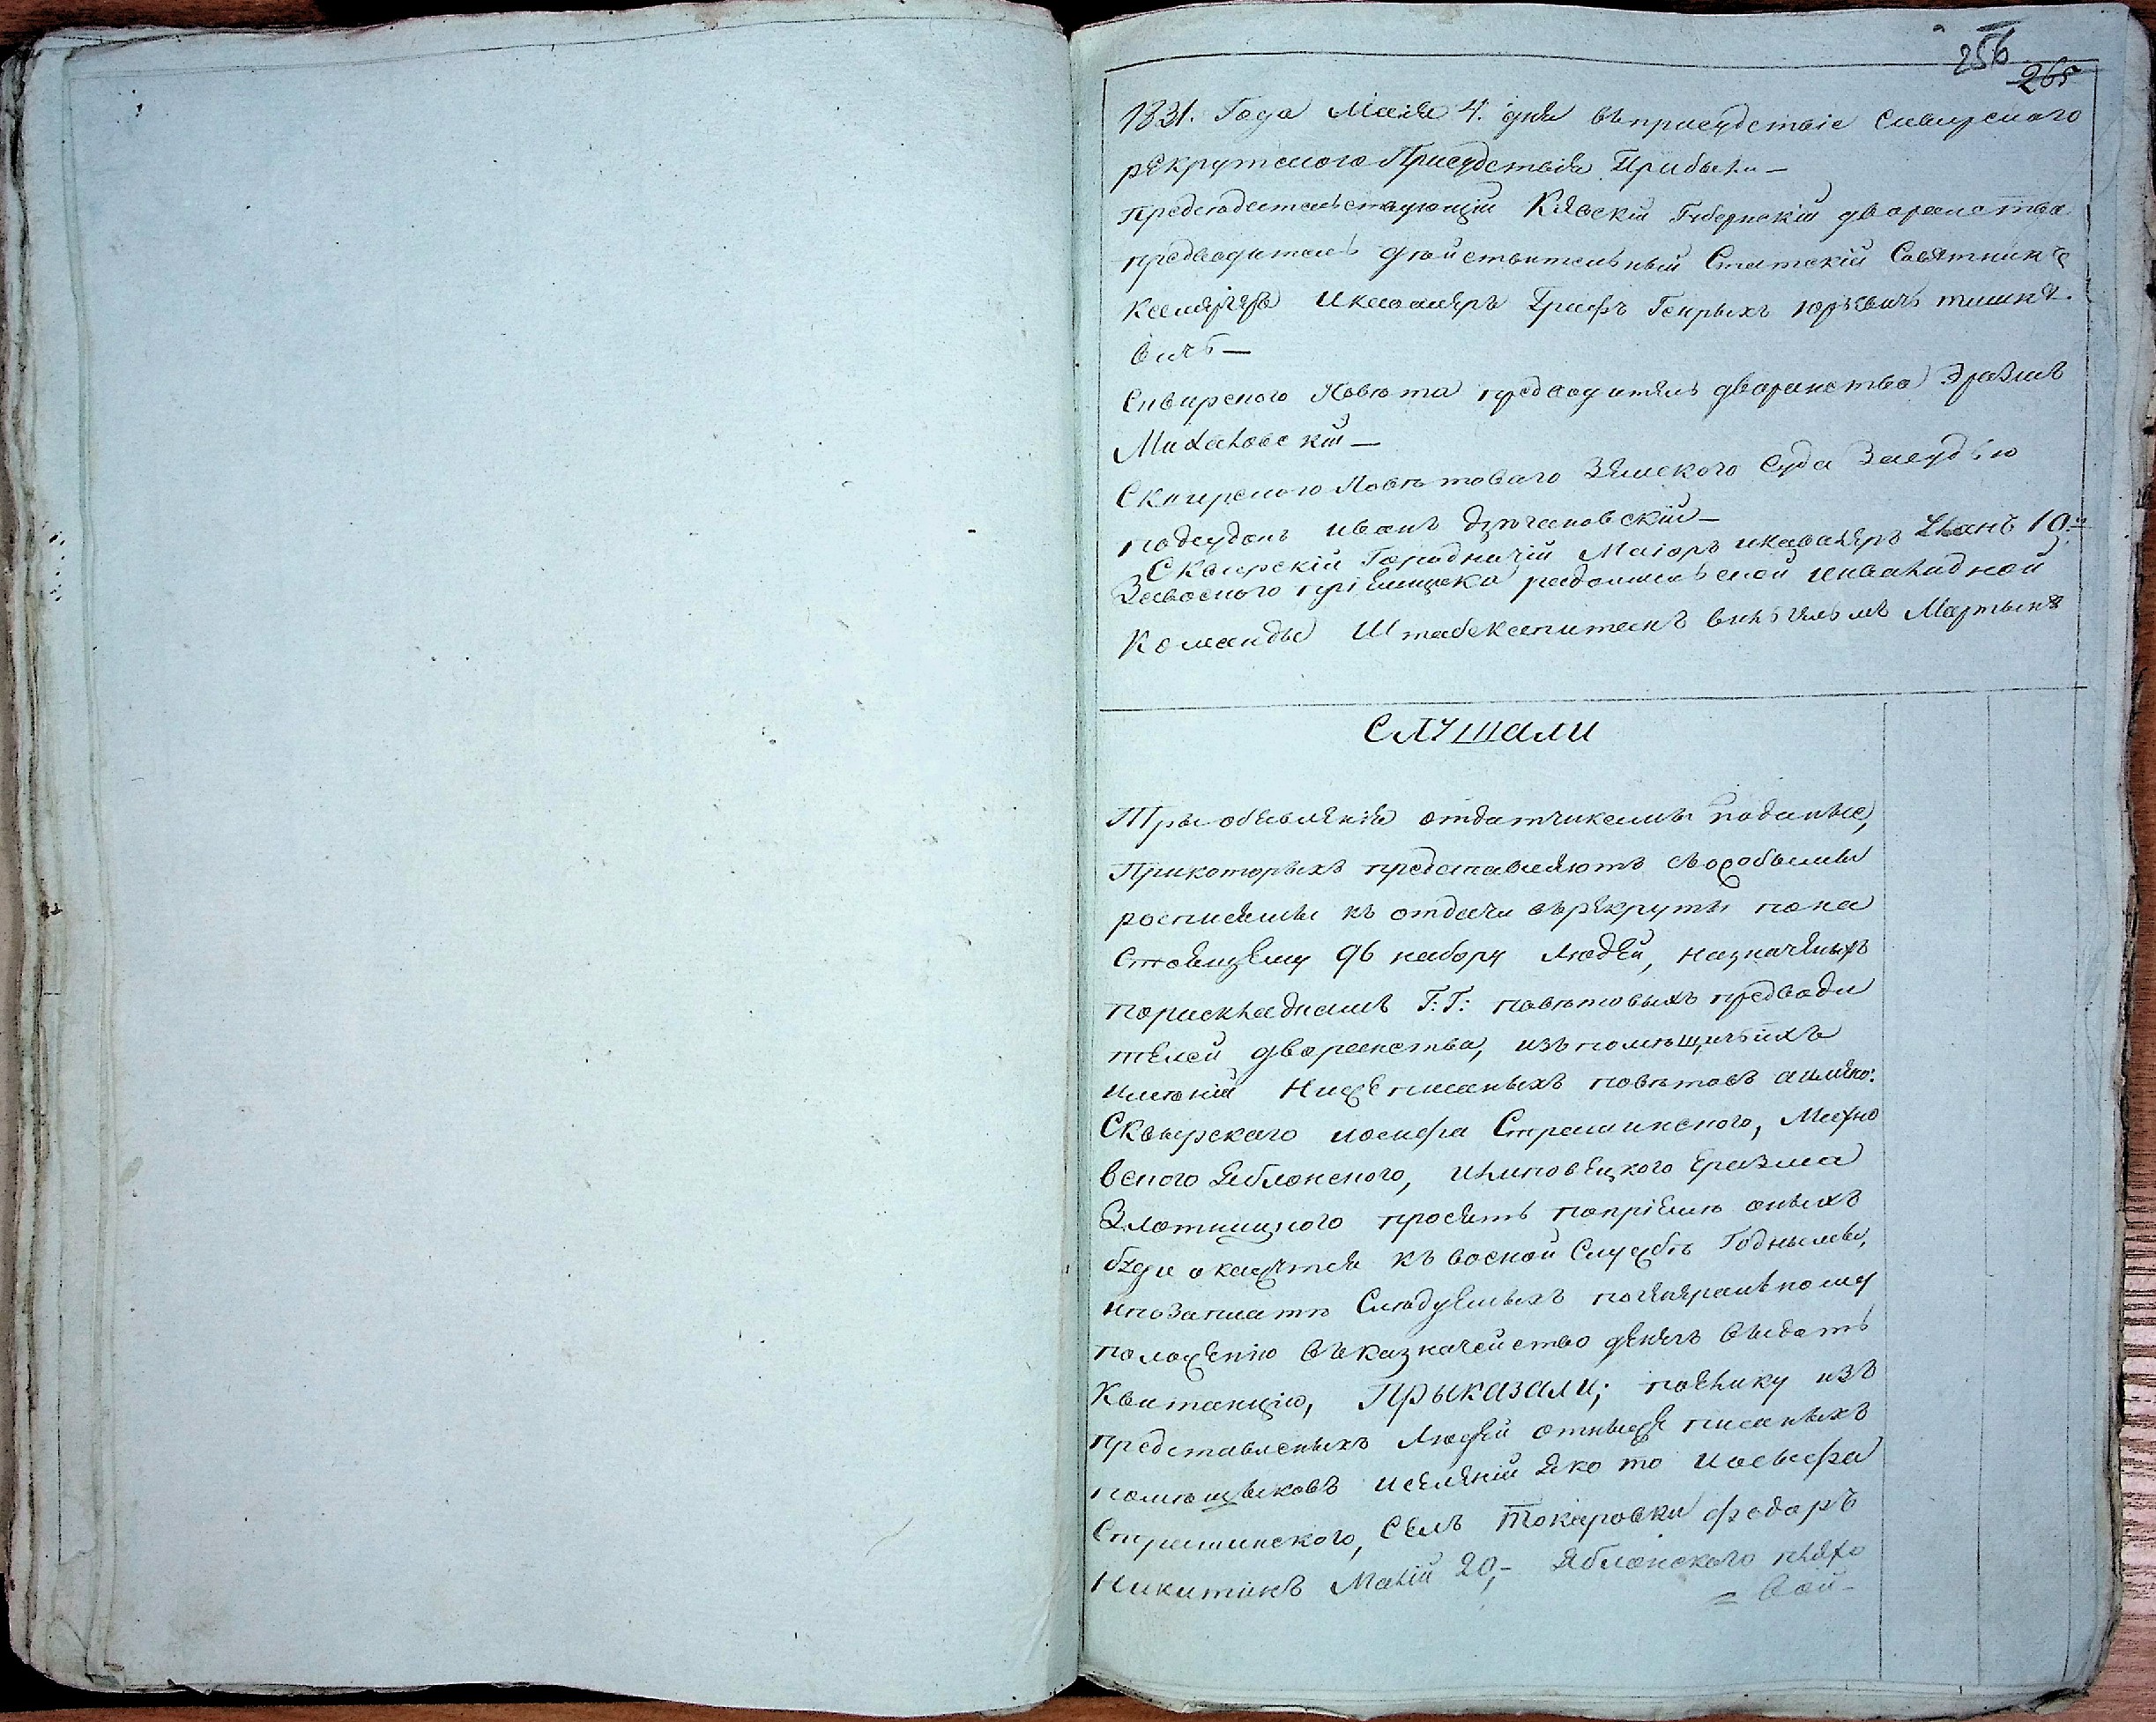 256
265
1831. Года Маія 4. дня въприсудствіе Сквирского
рекрутского Присудствія Прибыли —
Предсѣдательствующій Кіевскій Губернскій дворанства
предводитель дѣйствительный Статскій Совѣтникъ
Камергеръ Икавалеръ Графъ Генрыхъ Юрьевичъ тишке-
вичъ —
Сквирского Повѣта предводитель дворанства Эразмъ
Михаловскій —
Сквирского Повѣтоваго Земского Суда Засудью
подсудокъ иванъ
Сквирскій Городничій Маіоръ икавалеръ
Завоеного пріемщика радомысльской инвалидной
Команды Штабскапитанъ вильгельмъ Мартынъ
СЛУШАЛИ
Тры обявленія отдатчиками поданые,
Прикоторыхъ представляютъ съособыми
росписями къ отдачи врекруты пона
Стоящему 96 набору людей, назначеныхъ
пораскладкамъ Г:Г: повѣтовыхъ предводи
телей дворанства, изъпомѣщичьихъ
имѣній Нижеписаныхъ повѣтовъ аимено:
Сквырскаго иосифа Страшинского, Махно
вского Яблонского, илиповецкого Еразма
Злотницкого просятъ попріемѣ оныхъ
буде окажутся къ военой Службѣ Годными,
ипозаплатѣ Слѣдуемыхъ погенеральному
положенію Вказначейство денегъ выдать
Квитанціи, Прыказали; поелику изъ
представленыхъ людей отныже писаныхъ
помѣщыковъ иселеній яко то иосифа
Страшинского, Селъ Токаровки федоръ
Никитинъ Малій 20,- Яблонского пляхо
= вой -